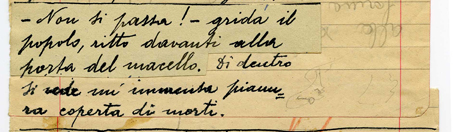 - Non si passa! - gridò il
popolo, ritto davanti alla
porta del macello. Di dentro
si vede un'immensa pianu=
ra coperta di morti.